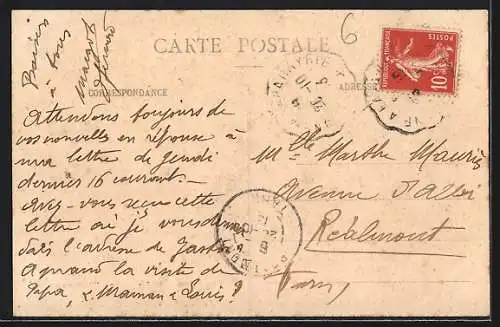 Baisers
à tous
Margot
6
CARTE POSTALE
CORRESPONDANCE
ADRESSE
REPUBLIQUE FRANÇAISE
POSTES
10c
Attendons toujours de
vos nouvelles en réponse à
ma lettre de jeudi
dernier 16 courant.-
Avez-vous reçu cette
lettre où je vous
dais l'adresse de
A quand la visite de
Papa, & Maman & Louis?
Mlle Marthe Mauriès
Avenue d'Albi
Réalmont
Tarn